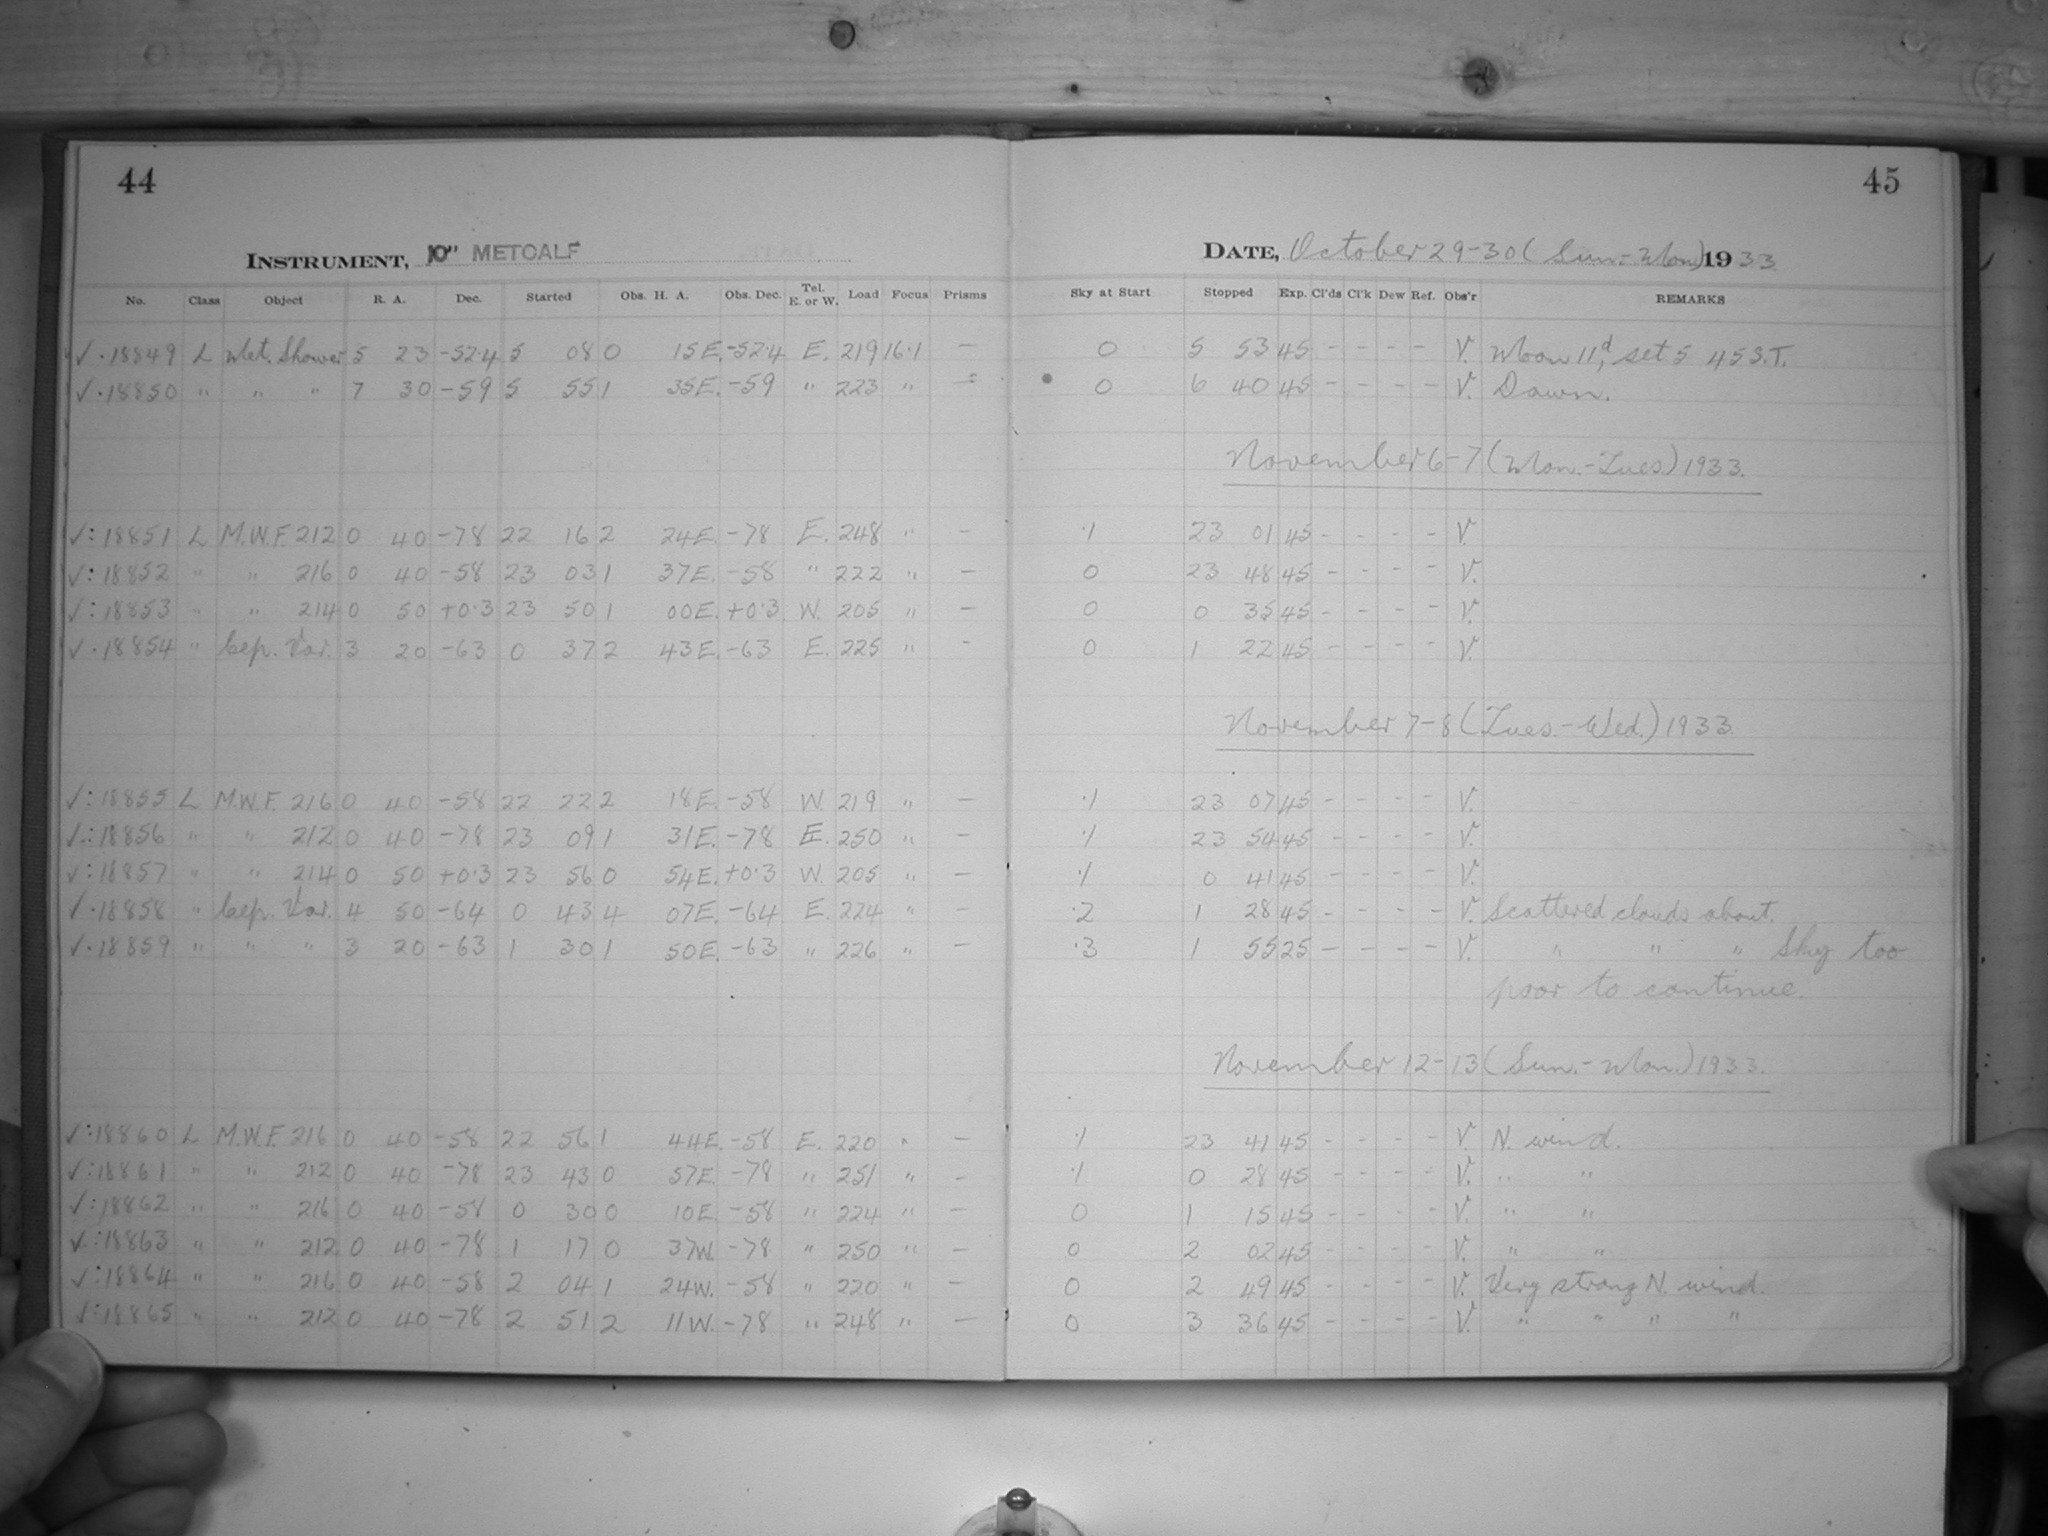 44
45
INSTRUMENT, 10" METCALF
DATE, October 29-30 (Sun.-Mon.) 1933
No. Class Object R. A. Dec. Started Obs. H. A. Obs. Dec. Tel. E. or W. Load Focus Prisms Sky at Start Stopped Exp. Cl'ds Cl'k Dew Ref. Obs'r REMARKS
√ · 18849 L Met. Shower 5 23 -52.4 5 08 0 15E. -52.4 E. 219 16.1 — 0 5 53 45 - - - - V. Moon 11d, set 5 45 S.T.
√ · 18850 " " " 7 30 -59 5 55 1 35E. -59 " 223 " — 0 6 40 45 - - - - V. Dawn.
November 6-7 (Mon.-Tues) 1933.
√ : 18851 L M.W.F. 212 0 40 -78 22 16 2 24E. -78 E. 248 " — .1 23 01 45 - - - - V.
√ : 18852 " " 216 0 40 -58 23 03 1 37E. -58 " 222 " — 0 23 48 45 - - - - V.
√ : 18853 " " 214 0 50 +0.3 23 50 1 00E. +0.3 W. 205 " — 0 0 35 45 - - - - V.
√ · 18854 " Cep. Var. 3 20 -63 0 37 2 43E. -63 E. 225 " - 0 1 22 45 - - - - V.
November 7-8 (Tues.-Wed.) 1933.
√ : 18855 L M.W.F. 216 0 40 -58 22 22 2 18E. -58 W. 219 " — .1 23 07 45 - - - - V.
√ : 18856 " " 212 0 40 -78 23 09 1 31E. -78 E. 250 " — .1 23 54 45 - - - - V.
√ : 18857 " " 214 0 50 +0.3 23 56 0 54E. +0.3 W. 205 " — .1 0 41 45 - - - - V.
√ · 18858 " Cep. Var. 4 50 -64 0 43 4 07E. -64 E. 224 " — .2 1 28 45 - - - - V. Scattered clouds about.
√ · 18859 " " " 3 20 -63 1 30 1 50E. -63 " 226 " — .3 1 55 25 - - - - V. " " " Sky too
poor to continue.
November 12-13 (Sun.-Mon.) 1933.
√ : 18860 L M.W.F. 216 0 40 -58 22 56 1 44E. -58 E. 220 " — .1 23 41 45 - - - - V. N. wind.
√ : 18861 " " 212 0 40 -78 23 43 0 57E. -78 " 251 " — .1 0 28 45 - - - - V. " "
√ : 18862 " " 216 0 40 -58 0 30 0 10E. -58 " 224 " — 0 1 15 45 - - - - V. " "
√ : 18863 " " 212 0 40 -78 1 17 0 37W. -78 " 250 " — 0 2 02 45 - - - - V. " "
√ : 18864 " " 216 0 40 -58 2 04 1 24W. -58 " 220 " — 0 2 49 45 - - - - V. Very strong N. wind.
√ : 18865 " " 212 0 40 -78 2 51 2 11W. -78 " 248 " — 0 3 36 45 - - - - V. " " " "